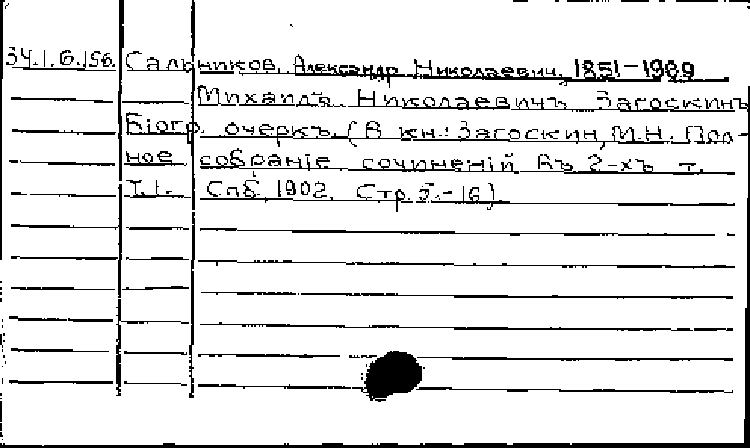 34.1.6.156. Сальников, Александр Николаевич, 1851-1909
Михаилъ Николаевичъ Загоскинъ
Біогр. очеркъ. (В кн.: Загоскин, М.Н. Пол-
ное собраніе сочиненій въ 2-хъ т.
Т.1. Спб, 1902, Стр. 5.-16).